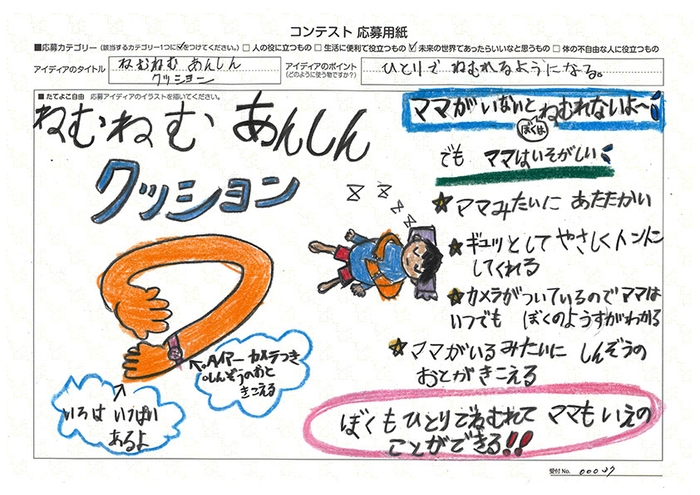 コンテスト 応募用紙
■応募カテゴリー（該当するカテゴリー1つに✓をつけてください。） □ 人の役に立つもの □ 生活に便利で役立つもの ☑ 未来の世界であったらいいなと思うもの □ 体の不自由な人に役立つもの
アイディアのタイトル
ねむねむ あんしん
クッション
アイディアのポイント
（どのように使う物ですか？）
ひとりで ねむれるようになる。
■ たてよこ自由 応募アイディアのイラストを描いてください。
ねむねむ あんしん
クッション
ママがいないと ねむれないよ〜
ぼくは
でも ママはいそがしい
★ママみたいに あたたかい
★ギュッとして やさしくトントン
してくれる
★カメラがついているので ママは
いつでも ぼくのようすがわかる
★ママがいるみたいに しんぞうの
おとがきこえる
z z z z
。タイマー カメラつき
。しんぞうのおと
きこえる
いろは いっぱい
あるよ
ぼくもひとりでねむれて ママもいえの
ことができる!!
受付No. 00037